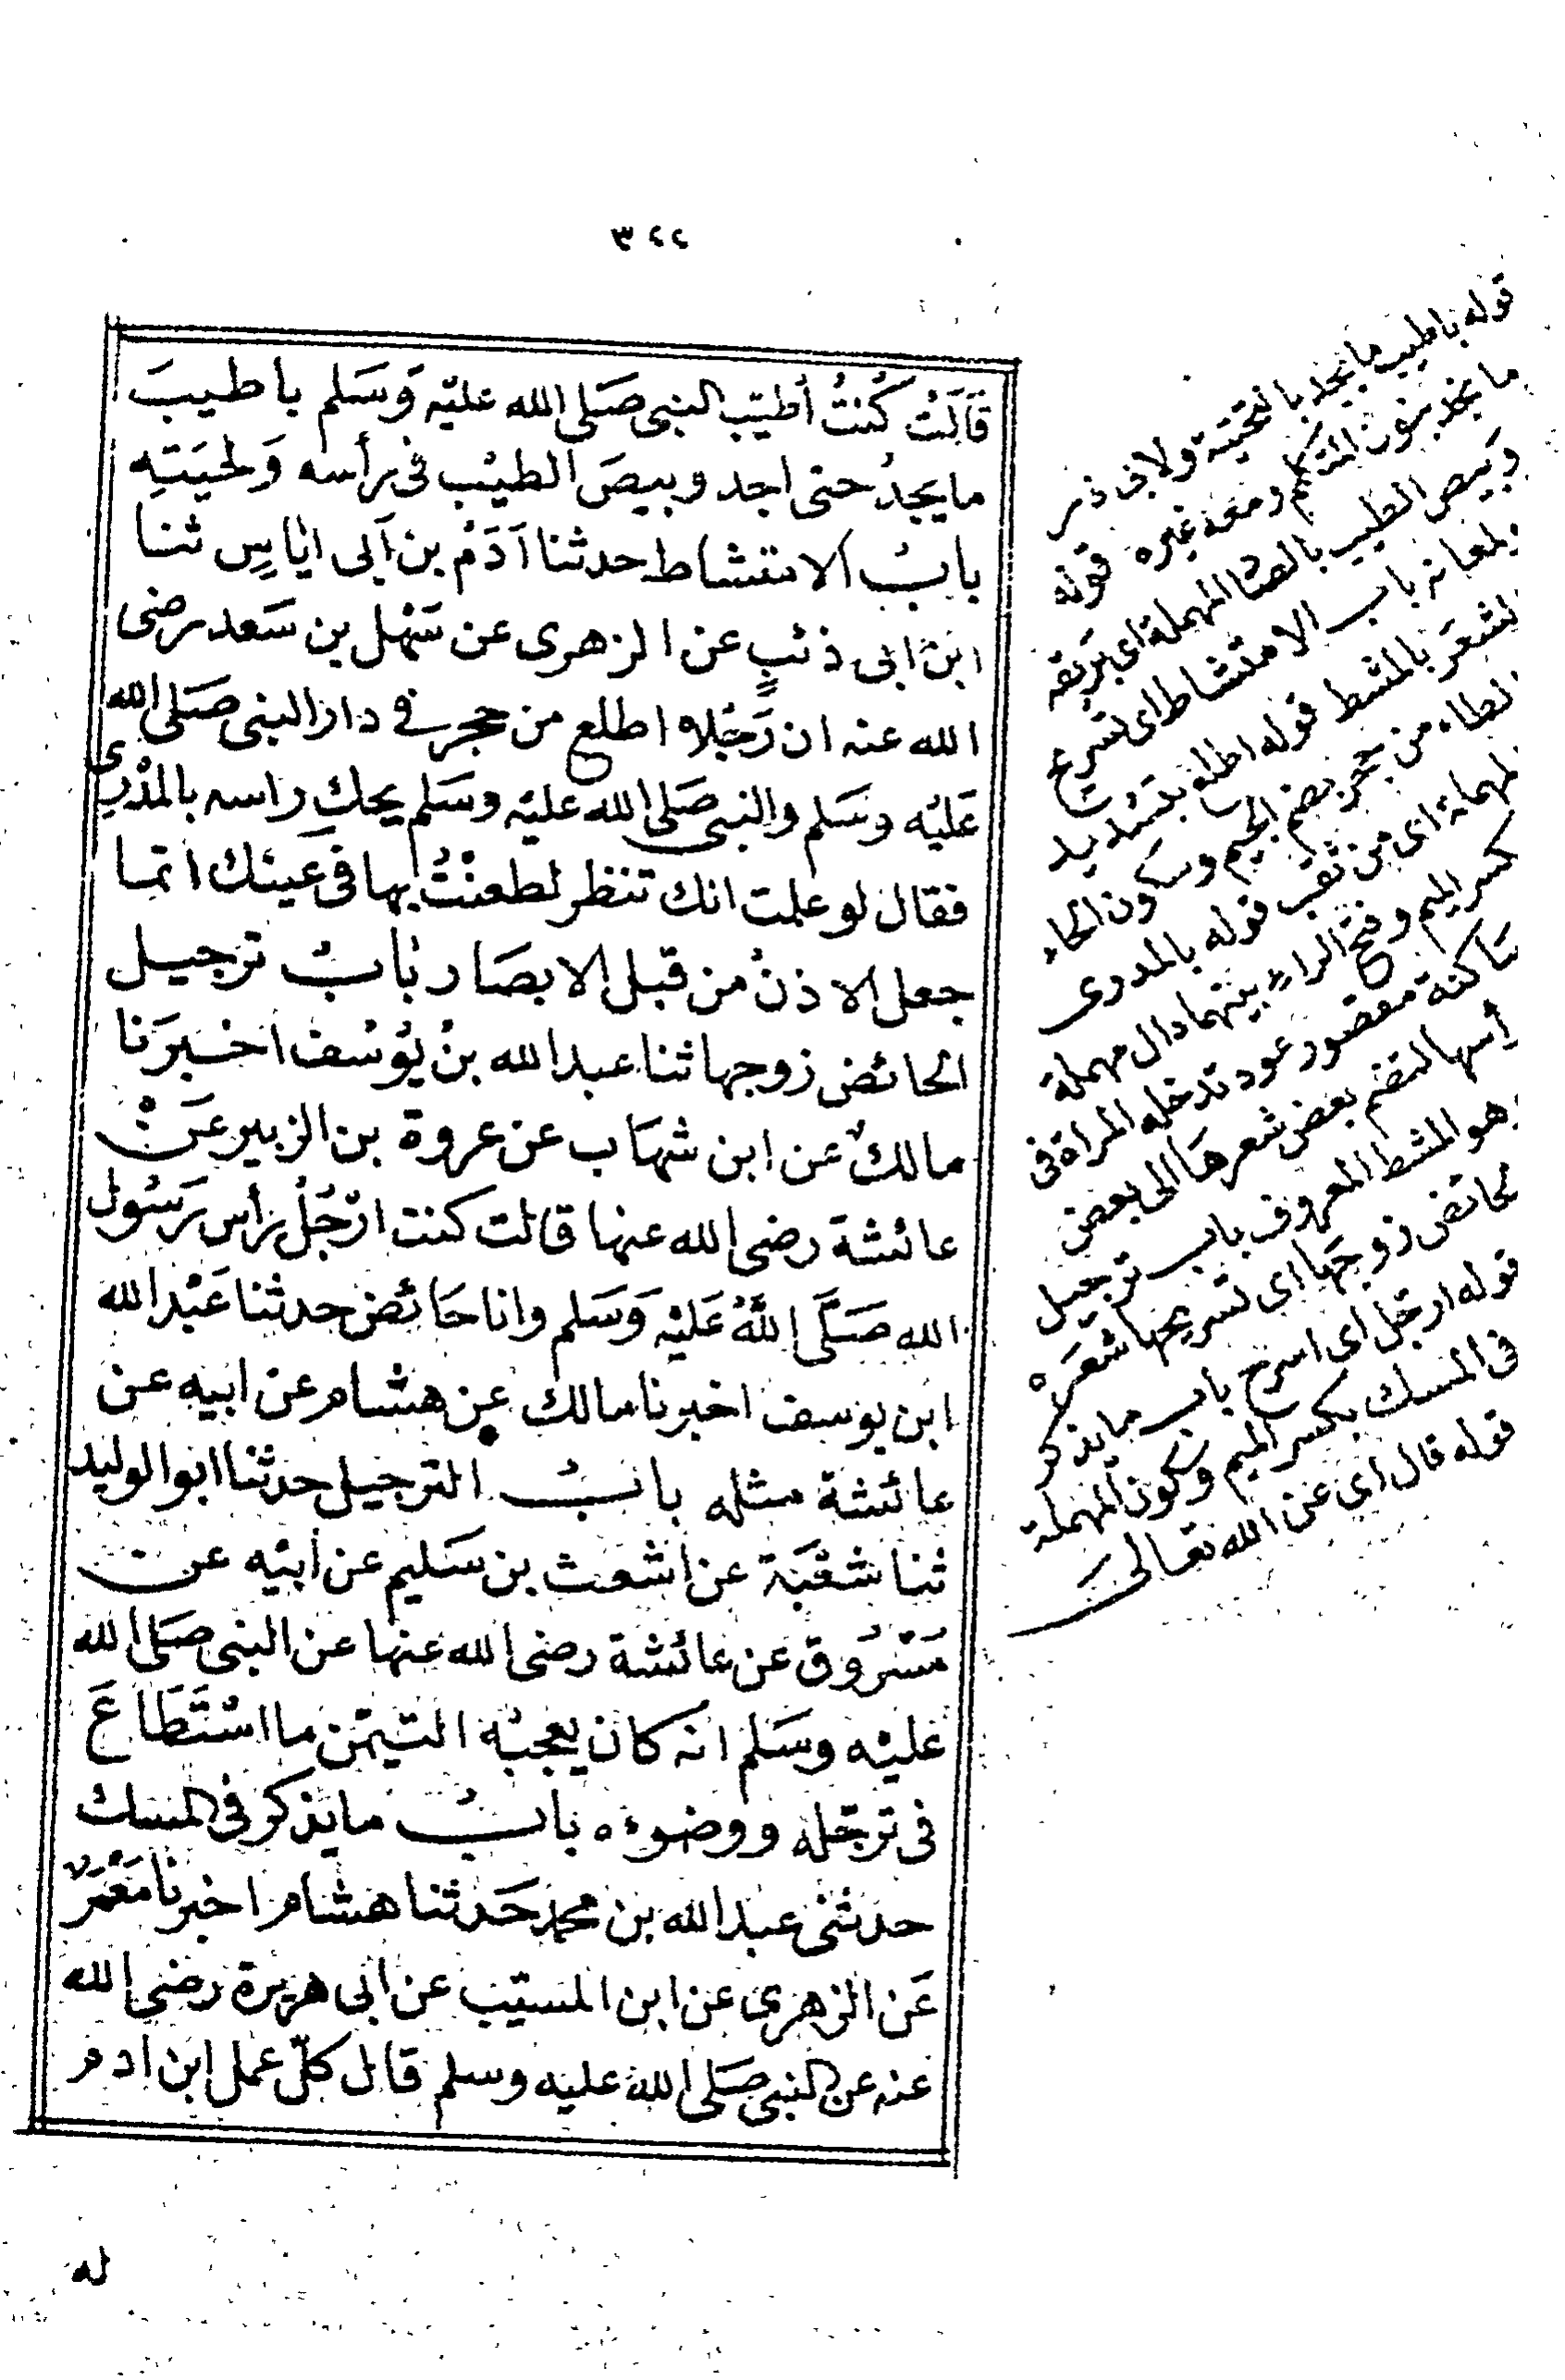 ٣٢٢
قَالَتْ كُنتُ أُطيّب النبى صَلى الله عليْه وَسَلم باطيبَ
ما يجدُ حتى اجد وبيصَ الطيْب فى رأسه وَلحيَتِه
بابُ الامتشاط حدثنا آدَمْ بن أبى اياسٍ ثنا
ابن ابى ذئبٍ عن الزهرى عن سَهْل بن سَعد رضى
الله عنه ان رَجُلا اطلع من جحر فى دار النبى صَلى الله
عَليْه وسَلم والنبى صَلى الله عليْه وسَلم يحك راسه بالمدْرِى
فقال لو علمت انك تنظر لطعنْتُ بها فى عَينك انما
جعل الاذنُ من قبل الابصَار بابُ ترجيل
الحائض زوجها ثنا عبد الله بنُ يُوسُف اخبرَنا
مالكٌ عن ابن شهَاب عن عروة بن الزبير عَنْ
عائشة رضى الله عنها قالت كنت ارَجُلُ رأس رَسُول
الله صَلَّى اللهُ عَليْه وَسَلم وانا حَائض حدثنا عَبْد الله
ابن يوسف اخبرنا مالك عن هشام عن ابيه عن
عائشة مثله بابُ الترجيل حدثنا ابو الوليد
ثنا شعْبَة عن اشعث بن سَليم عن أبيْه عن
مَسْرُوق عن عائشة رضى الله عنها عن النبى صَلى الله
عليْه وسَلم انه كان يعجبُه التيمّن ما اسْتَطَاعَ
فى ترجّله ووضوءه بابُ ما يذكر فى المسك
حدثنى عبد الله بن محمد حَدثنا هشام اخبرنا مَعْمَرٌ
عَن الزهرى عن ابن المسيّب عن ابى هريرة رضى الله
عنه عن النبى صَلى الله عليه وسلم قال كلّ عمل ابن ادم
له
قوله باطيب ما يجد بالتحتية ولابى ذر
ما نجد بنون المتكلم ومعه غيره قوله
وَبيص الطيب بالصاد المهملة اى بَريقه
ولمعانه باب الامتشاط اى تسريح
الشعَر بالمشط قوله اطلع بتشديد
الطاء من جحر بضم الجيم وسكون الحاء
المهملة اى من ثقب قوله بالمدرى
بكسر الميم وفتح الراء بينهما دال مهملة
سَاكنة مقصور عود تدخله المراة فى
رأسها لتضم بعض شعرهَا الى بعض
وهو المشط المعروف باب ترجيل
الحائض زوجهَا اى تسريحها شعَره
قوله ارجّل اى اسرح باب ما يذكر
فى المسك بكسر الميم وسكون المهملة
قوله قال اى عن الله تعالى